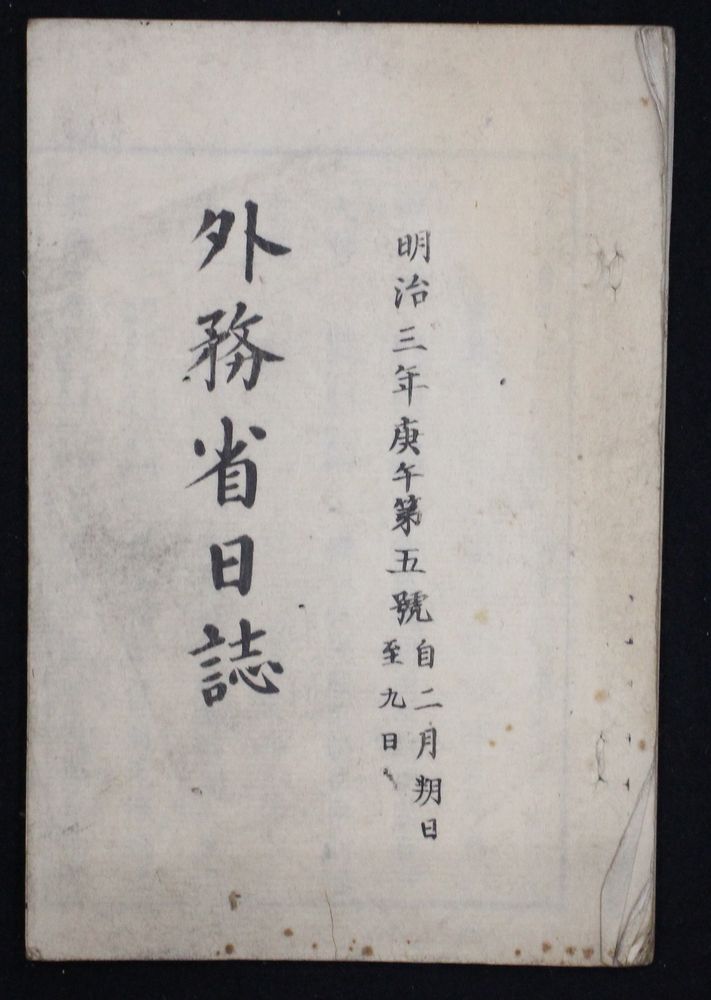 明治三年庚午第五號
自二月朔日
至九日
外務省日誌